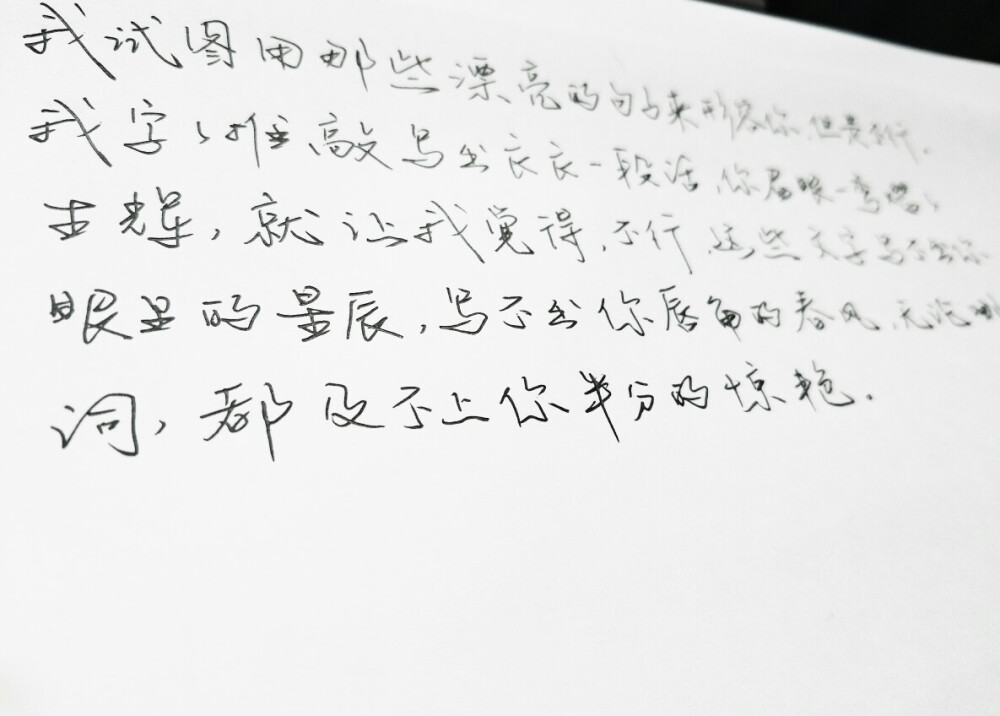 我试图用那些漂亮的句子来形容你,但是不行,
我字字推敲写出长长一段话,你眉眼一弯熠熠
生辉,就让我觉得,不行,这些文字写不出你
眼里的星辰,写不出你唇角的春风,无论
词,都及不上你半分的惊艳.